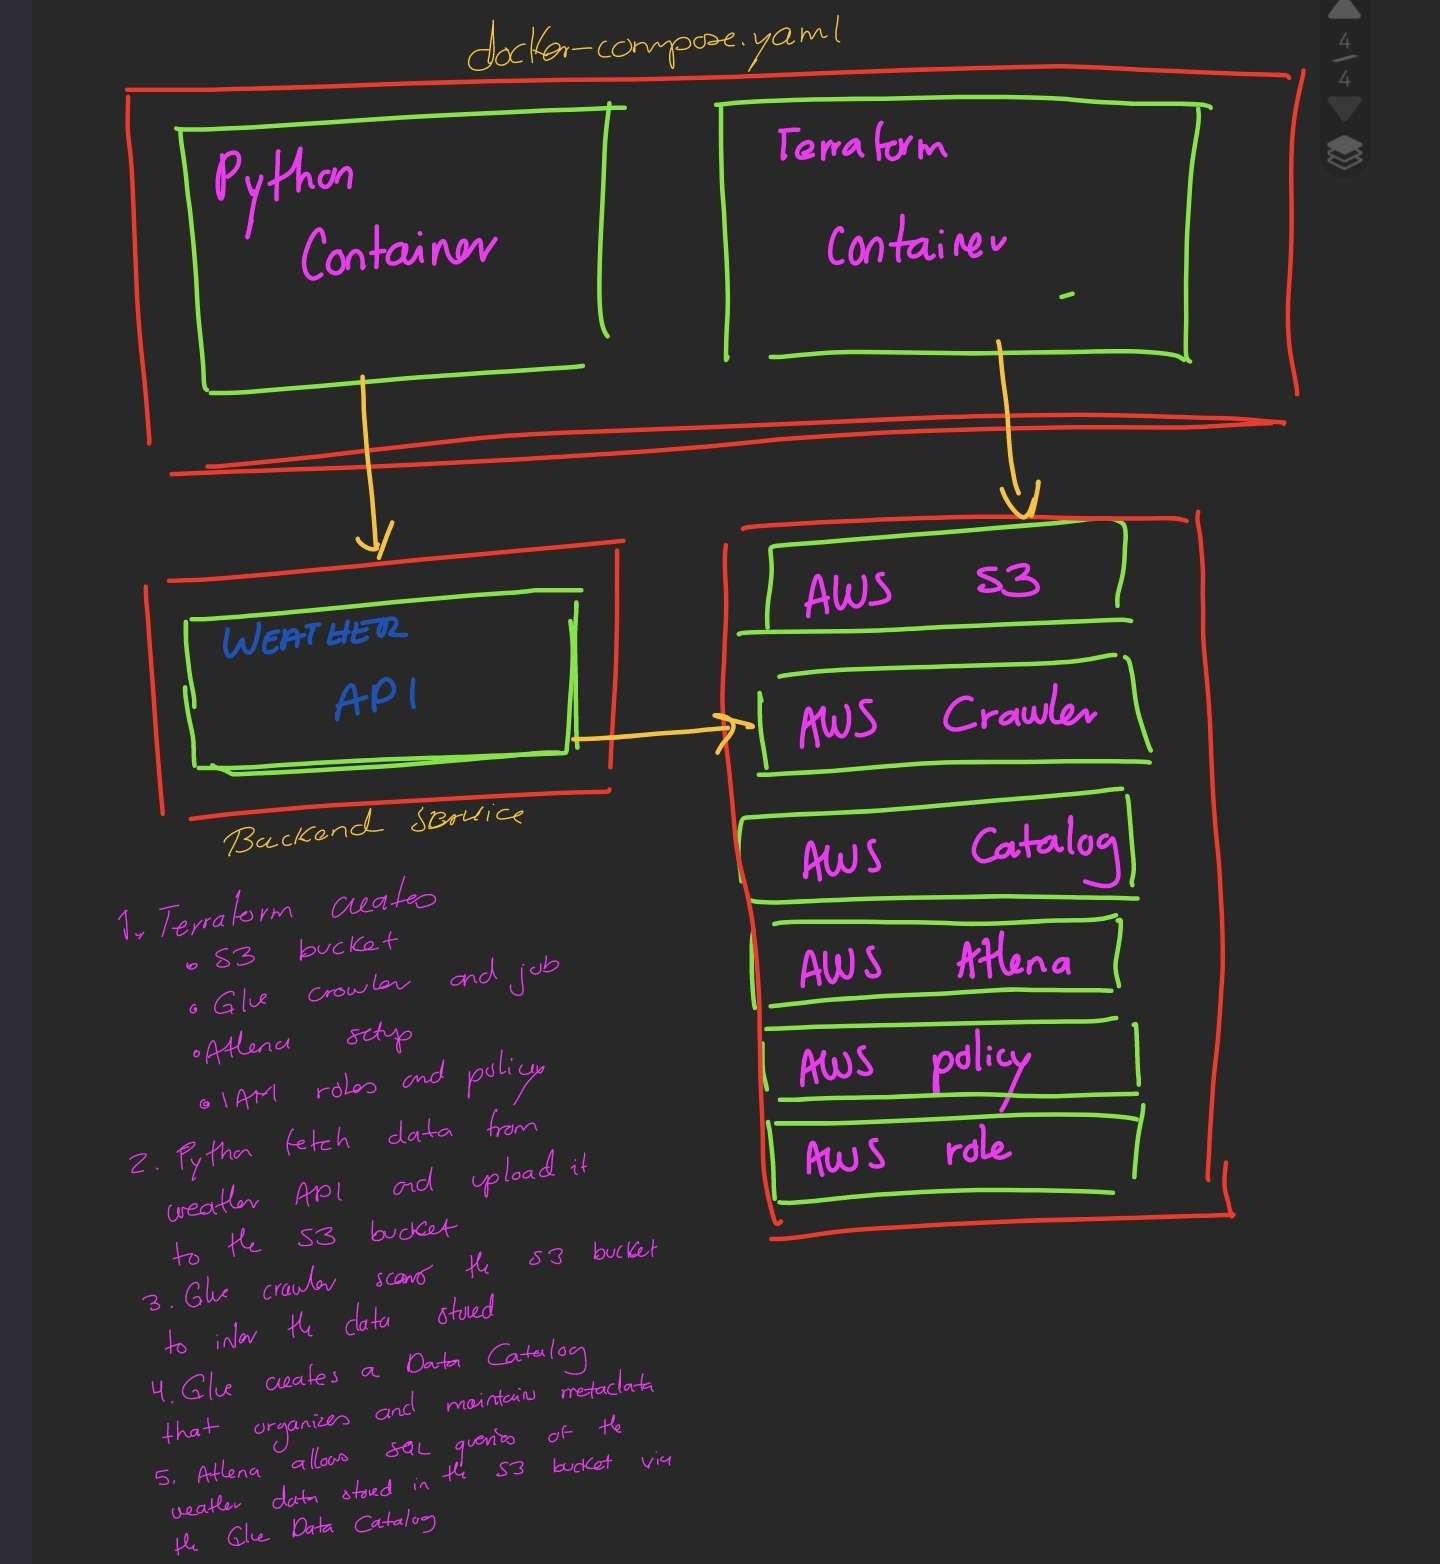 docker-compose.yaml
4
4
Python
Container
Terraform
Container
WEATHER
API
Backend service
AWS S3
AWS Crawler
AWS Catalog
AWS Athena
AWS policy
AWS role
1. Terraform creates
• S3 bucket
• Glue crawler and job
• Athena setup
• IAM roles and policy
2. Python fetch data from
weather API and upload it
to the S3 bucket
3. Glue crawler scans the S3 bucket
to infer the data stored
4. Glue creates a Data Catalog
that organizes and maintain metadata
5. Athena allows SQL queries of the
weather data stored in the S3 bucket via
the Glue Data Catalog